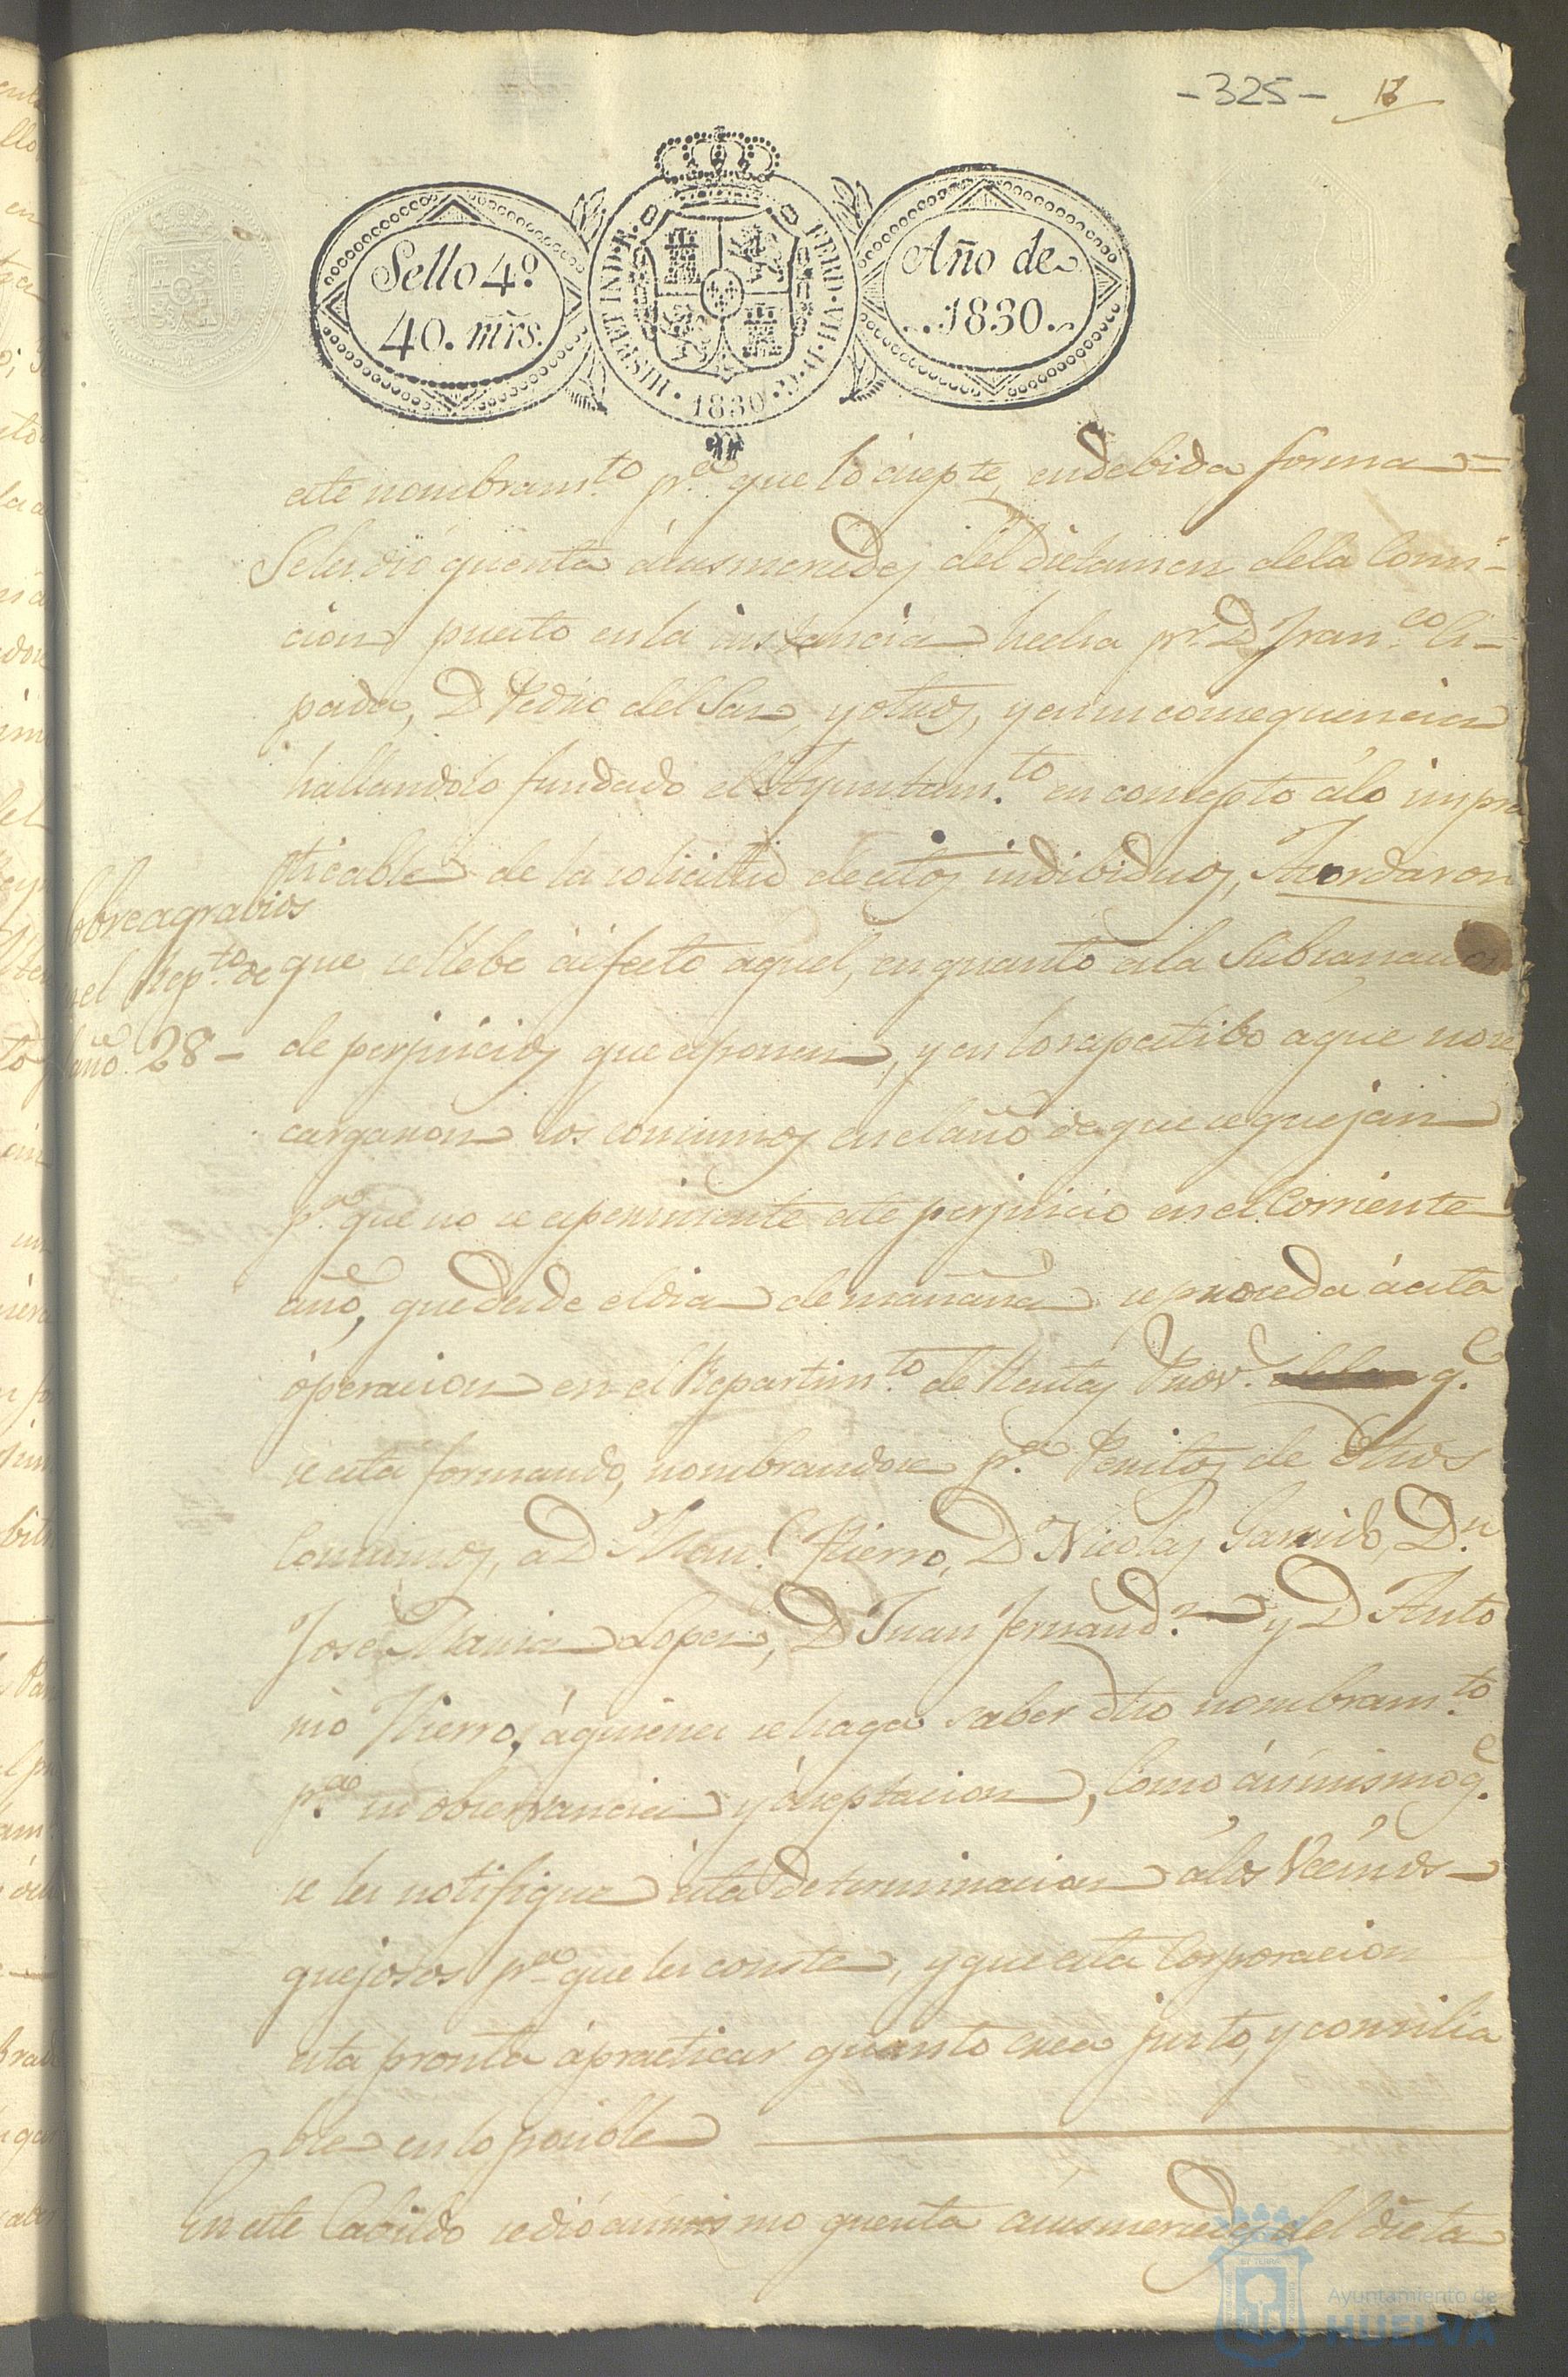 -325- 17
Sello 4º
40. mrs.
HISP. ET IND. R. FERD. VII. D. G. 1830
Año de
1830.
este nombram.to p.a que lo acepte, en debida forma =
Se les dió quenta á sus mercedes del dictamen de la Comi-
cion puesto en la instancia hecha pr. D. Fran.co
D. Pedro del Saz, y otros, y en su consequencia
hallandolo fundado el Ayuntam.to en concepto álo impra
ticable de la solicitud de estos indibiduos, Acordaron
que se llebe áefecto aquel, en quanto ala Subsanacion
de perjuicios que esponen, y en lo respectibo áque no se
cargaron los consumos en el año de que se quejan
p.a que no se esperimente este perjuicio en el Corriente
año, que desde el dia de mañana se proceda á esta
operacion en el Repartim.to de Rentas Prov.s q.e
se está formando, nombrandose p.a Peritos de dhos
Consumos, a D. Man.l Hierro, D. Nicolas Garrido, D.n
José Maria Lopez, D. Juan Fernand.z y D. Anto
nio Hierro, áquienes se haga saber dho nombram.to
p.a su observancia y aceptacion, Como ásimismo q.e
se les notifique esta determinacion álos Vecinos
quejosos p.a que les conste, y que esta Corporacion
esta pronta ápracticar quanto crea justo, y consilia
ble en lo posible
En este Cabildo se dió asimismo quenta ásus mercedes del dicta
Sobre agrabios
en el Rep.to de
año 28-
Ayuntamiento de
HUELVA